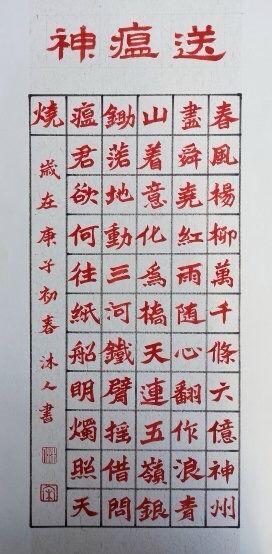 送瘟神
春風楊柳萬千條六億神州
盡舜堯紅雨随心翻作浪青
山着意化為橋天連五嶺銀
鋤落地動三河鐵臂摇借問
瘟君欲何往紙船明燭照天
燒
歲在庚子初春沐人書